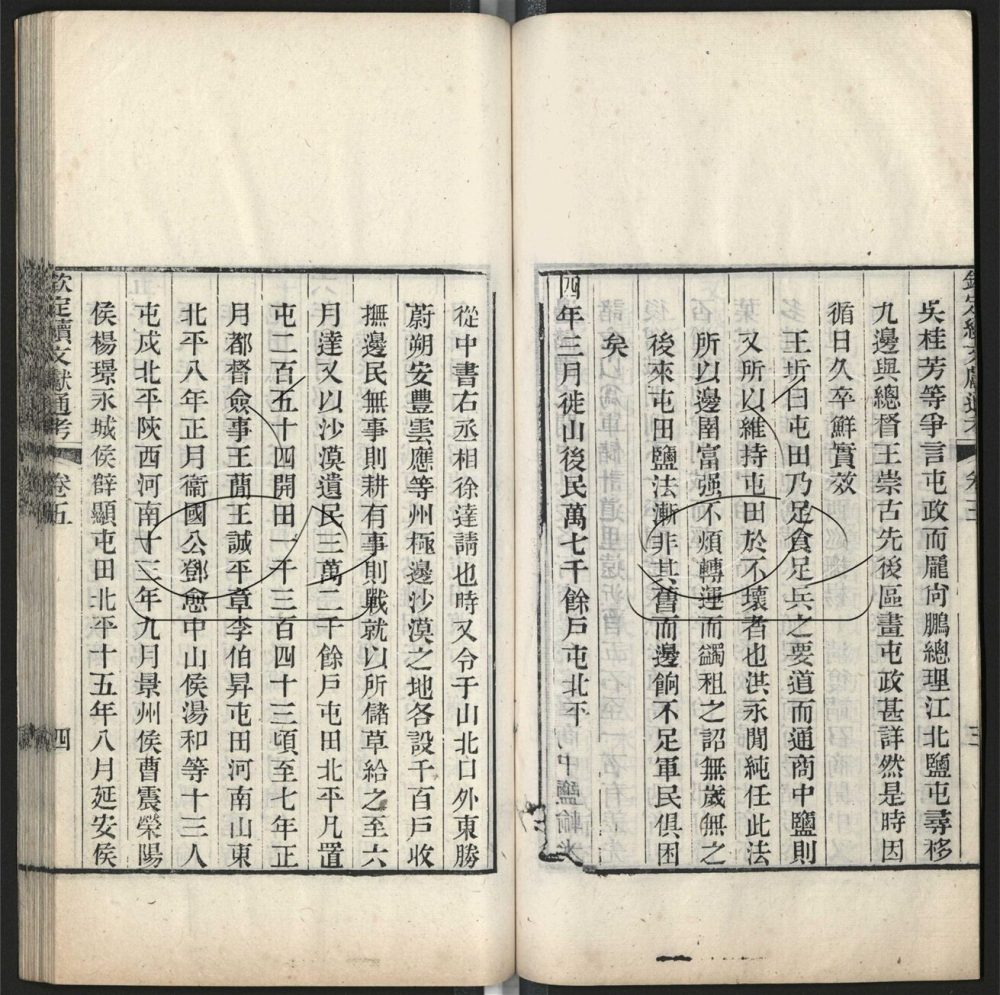 吳桂芳等爭言屯政而龎尙鵬總理江北鹽屯尋移
九邊與總督王崇古先後區畫屯政甚詳然是時因
循日久卒鮮實效
王圻曰屯田乃足食足兵之要道而通商中鹽則
又所以維持屯田於不壞者也洪永閒純任此法
所以邊圉富强不煩轉運而蠲租之詔無歲無之
後來屯田鹽法漸非其舊而邊餉不足軍民俱困
矣
四年三月徙山後民萬七千餘戶屯北平
從中書右丞相徐達請也時又令于山北口外東勝
蔚朔安豐雲應等州極邊沙漠之地各設千百戶收
撫邊民無事則耕有事則戰就以所儲草給之至六
月達又以沙漠遺民三萬二千餘戶屯田北平凡置
屯二百五十四開田一千三百四十三頃至七年正
月都督僉事王蕳王誠平章李伯昇屯田河南山東
北平八年正月衞國公鄧愈中山侯湯和等十三人
屯戍北平陝西河南十三年九月景州侯曹震榮陽
侯楊璟永城侯薛顯屯田北平十五年八月延安侯
欽定續文獻通考 卷五 四